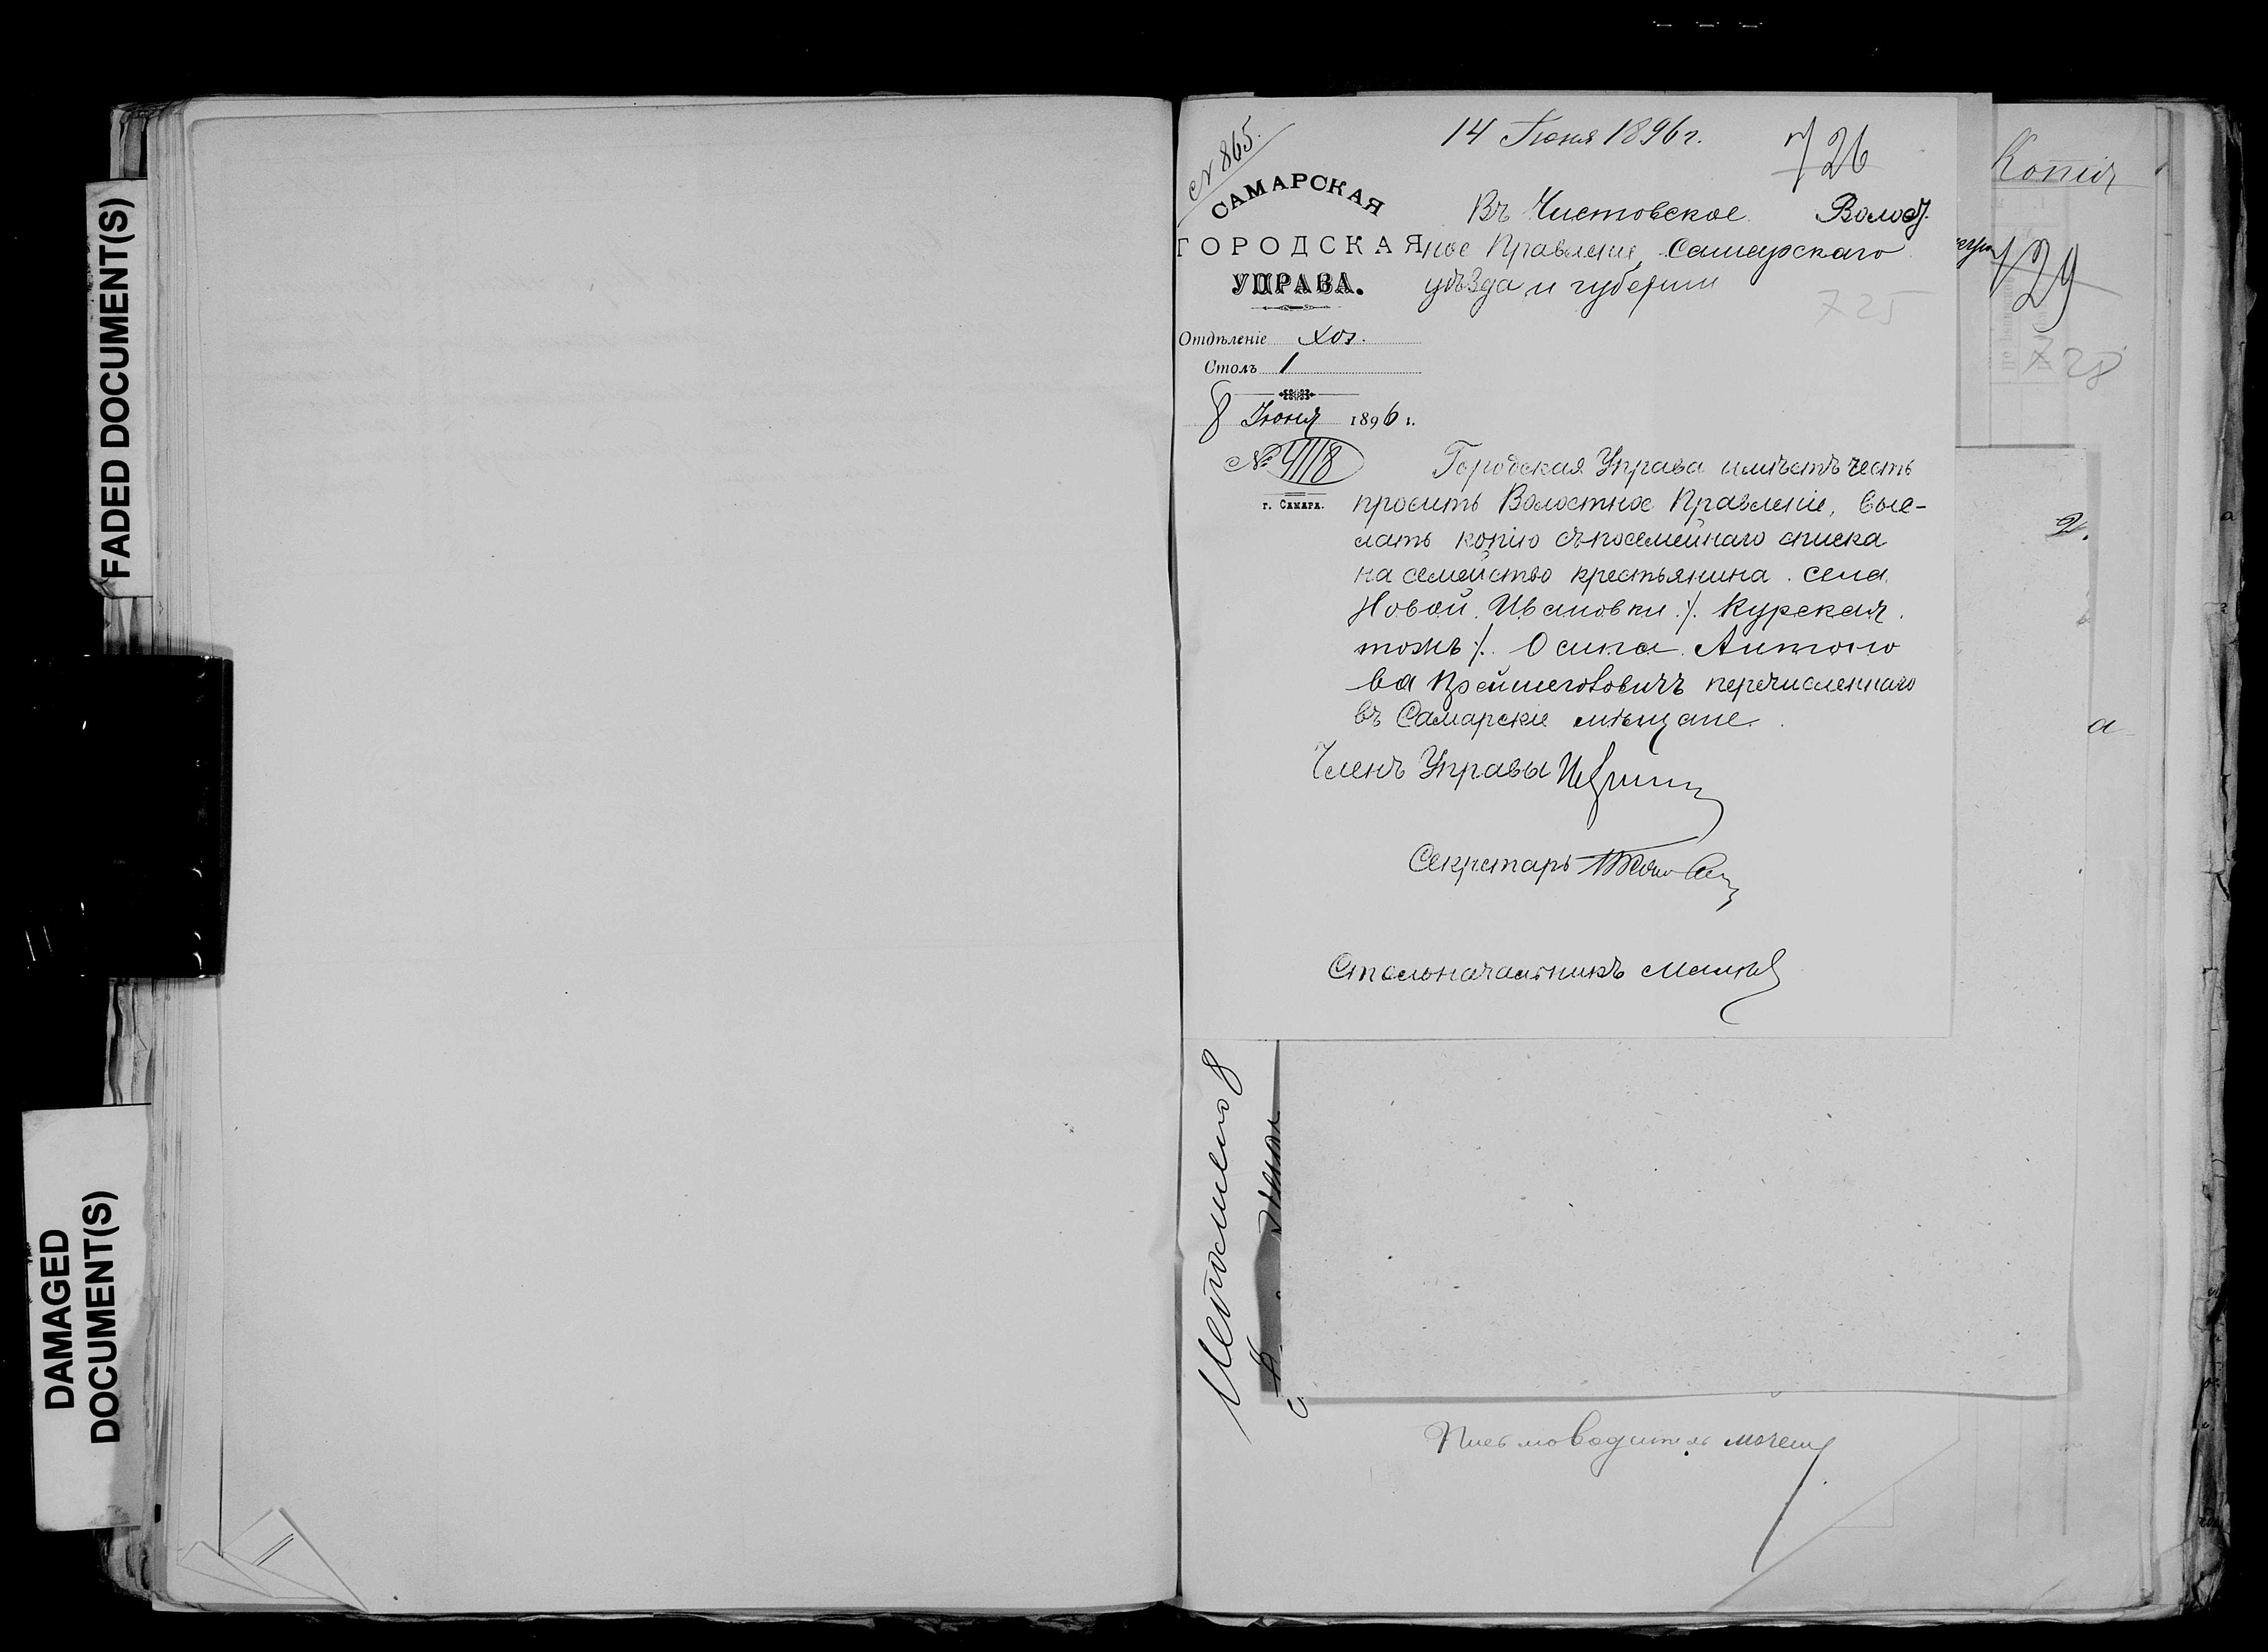 FADED DOCUMENT(S)
DAMAGED
DOCUMENT(S)
№ 865.
14 Июня 1896 г.
726
САМАРСКАЯ
ГОРОДСКАЯ
УПРАВА.
Отдѣленіе Хоз.
Столъ 1
8 Июня 1896 г.
№ 4118
г. САМАРА.
Въ Чистовское Волост-
ное Правленіе, Самарскаго
уѣзда и губерніи
725
Городская Управа имѣетъ честь
просить Волостное Правленіе, выс-
лать копію съ посемейнаго списка
на семейство крестьянина села
Новой Ивановки ./. Курская
тожъ ./. Осипа Антоно
ва перечисленнаго
въ Самарскіе мѣщане.
Членъ Управы
Секретарь
Столоначальникъ
Письмоводитель
Копія
729
728
2.
а